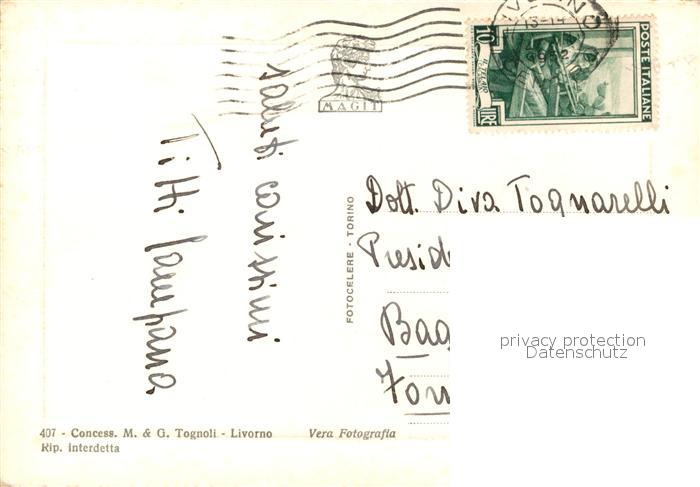 LIVORNO
13-14
1952
POSTE ITALIANE
10
LIRE
MAGIT
saluti carissimi
Titti
FOTOCELERE - TORINO
Dott. Diva Tognarelli
Presid
Bag
privacy protection
Datenschutz
407 - Concess. M. & G. Tognoli - Livorno
Vera Fotografia
Rip. interdetta